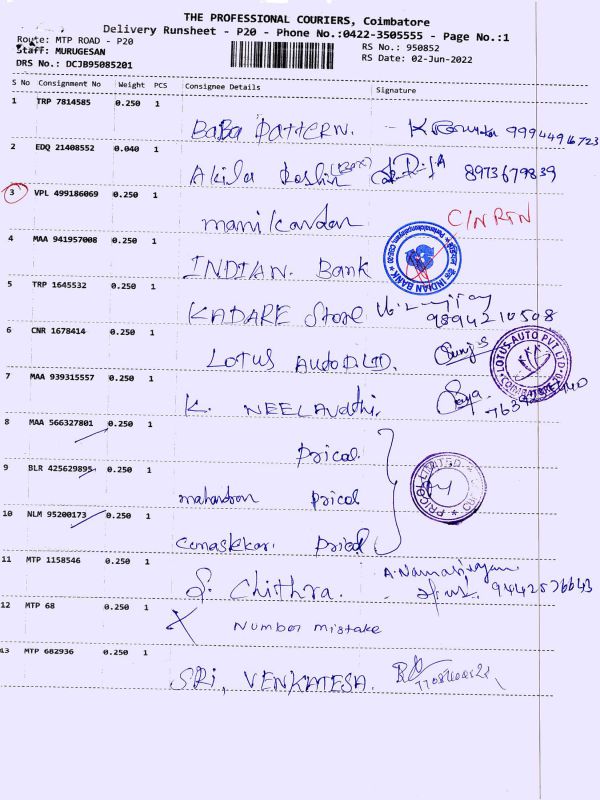 THE PROFESSIONAL COURIERS, Coimbatore
Delivery Runsheet - P20 - Phone No.:0422-3505555 - Page No.:1
Route: MTP ROAD - P20
RS No.: 950852
Staff: MURUGESAN
RS Date: 02-Jun-2022
DRS No.: DCJB95085201
S No Consignment No Weight PCS Consignee Details Signature
1 TRP 7814585 0.250 1
BABA PATTERN. 99944916723
2 EDQ 21408552 0.040 1
Akila Roshin 8973679839
3 VPL 499186069 0.250 1
manikandan C/N RTN
4 MAA 941957008 0.250 1
INDIAN. Bank
INDIAN BANK
5 TRP 1645532 0.250 1
KADARE Store 9894210508
6 CNR 1678414 0.250 1
LOTUS AUTO P. LTD.
LOTUS AUTO PVT LTD
7 MAA 939315557 0.250 1
K. NEELAVATHI.
8 MAA 566327801 0.250 1
Pricol.
9 BLR 425629895 0.250 1
Pricol
PRICOL LIMITED
10 NLM 95200173 0.250 1
Pricol
11 MTP 1158546 0.250 1
S. Chithra. 9442576643
12 MTP 68 0.250 1
X Number mistake
13 MTP 682936 0.250 1
SRI, VENKATESA.